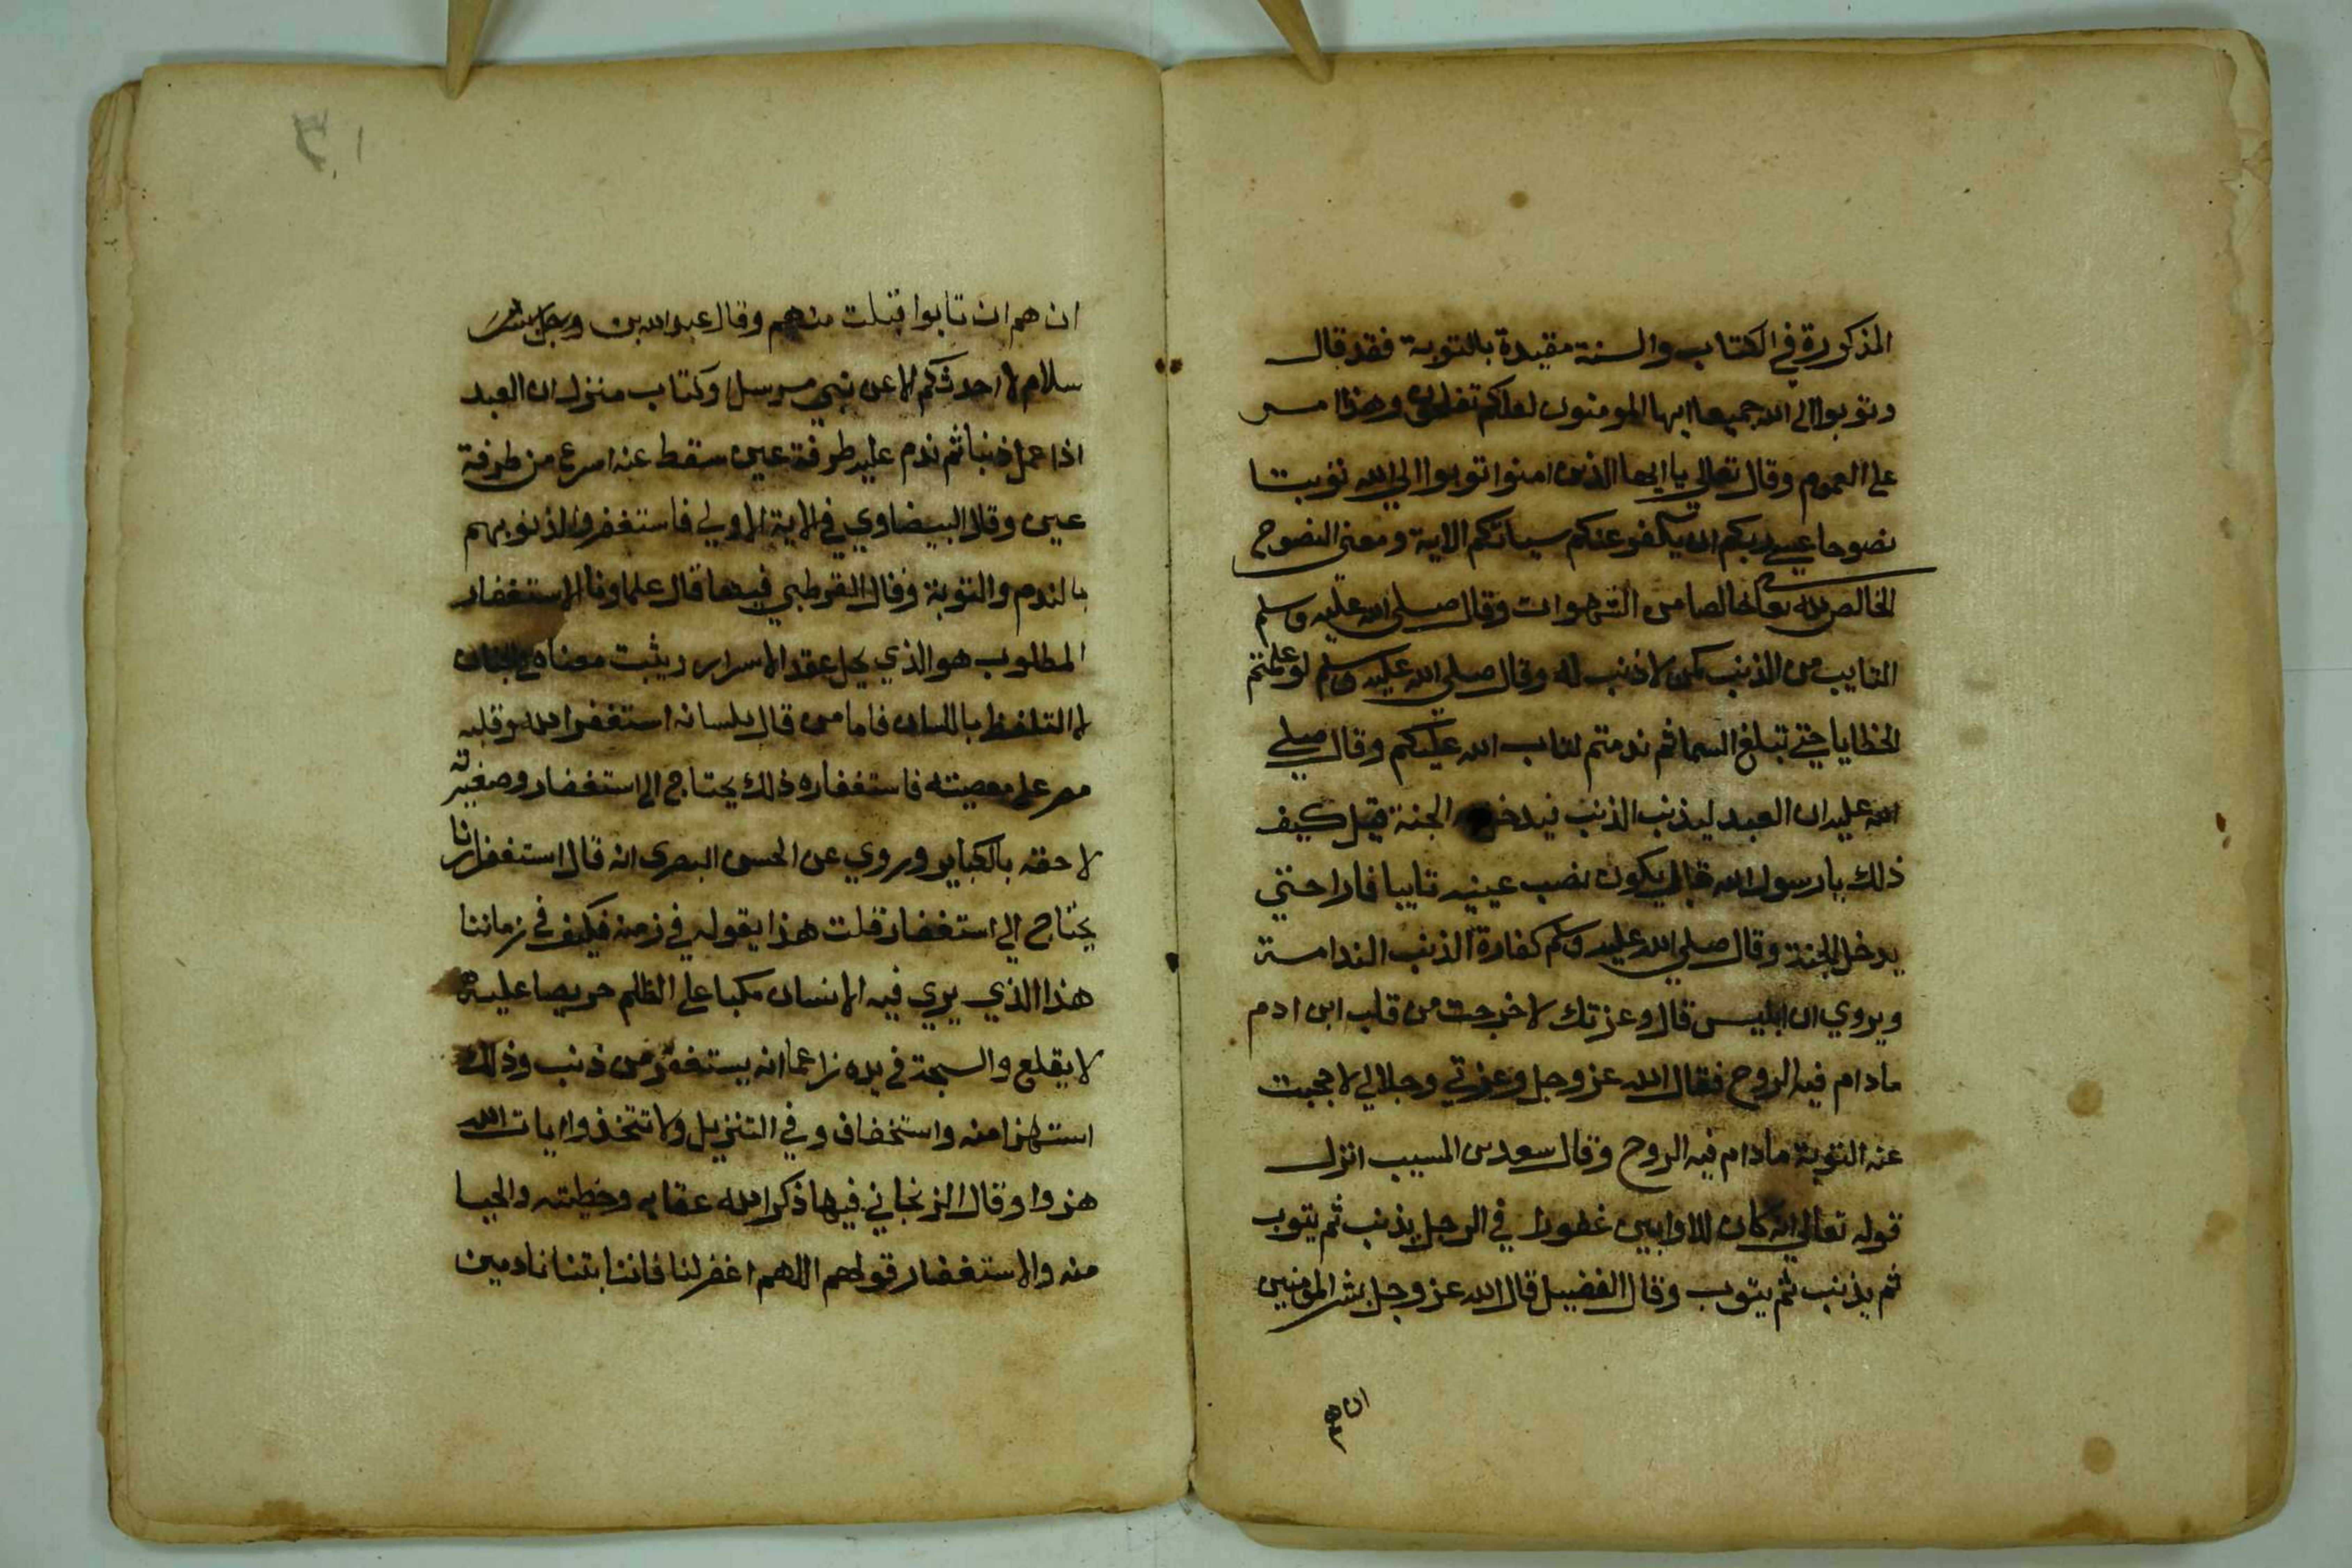 المذكورة في الكتاب والسنة مقيدة بالتوبة فقد قال
وتوبوا الي الله جميعا ايها المومنون لعلكم تفلحون وهذا
علي العموم وقال تعالي يا ايها الذين امنوا توبوا الي الله توبتا
نصوحا عسي ربكم ان يكفر عنكم سياتكم الاية ومعني النصوح
الخالص لله تعالي خالصا من الشهوات وقال صلي الله عليه وسلم
التايب من الذنب كمن لا ذنب له وقال صلي الله عليه وسلم لو علمتم
الخطايا حتي تبلغ السما ثم ندمتم لتاب الله عليكم وقال صلي
الله عليه ان العبد ليذنب الذنب فيدخل الجنة قيل كيف
ذلك يا رسول الله قال يكون نصب عينيه تايبا فارا حتي
يدخل الجنة وقال صلي الله عليه وسلم كفارة الذنب الندامة
ويروي ان ابليس قال وعزتك لا خرجت من قلب ابن ادم
مادام فيه الروح فقال الله عز وجل وعزتي وجلالي لا حجبت
عنه التوبة مادام فيه الروح وقال سعد بن المسيب انزل
قوله تعالي انه كان للاوابين غفورا في الرجل يذنب ثم يتوب
ثم يذنب ثم يتوب وقال الفضيل قال الله عز وجل بشر المذنبين
ان هم
ان هم ان تابوا قبلت منهم وقال عبد الله بن
سلام لا احدثكم الا عن نبي مرسل وكتاب منزل ان العبد
اذا عمل ذنبا ثم ندم عليه طرفة عين سقط عنه اسرع من طرفة
عين وقال البيضاوي في الاية الاولي فاستغفروا لذنوبهم
بالندم والتوبة وقال القرطبي فيها قال علماونا الاستغفار
المطلوب هو الذي يحل عقد الاسرار ويثبت معناه في الجنان
لا التلفظ باللسان فاما من قال بلسانه استغفر الله وقلبه
مصر علي معصيته فاستغفاره ذلك يحتاج الي استغفار وصغيرته
لاحقة بالكباير وروي عن الحسن البصري انه قال استغفارنا
يحتاج الي استغفار قلت هذا يقوله في زمنه فكيف في زماننا
هذا الذي يري فيه الانسان مكبا علي الظلم حريصا عليه
لا يقلع والسبحة في يده زاعما انه يستغفر من ذنب وذلك
استهزا منه واستخفاف وفي التنزيل ولا تتخذوا ايات الله
هزوا وقال الزنجاني فيها ذكر الله عقابه وخطيته والحيا
منه والاستغفار قولهم اللهم اغفر لنا فاننا بتنا نادمين